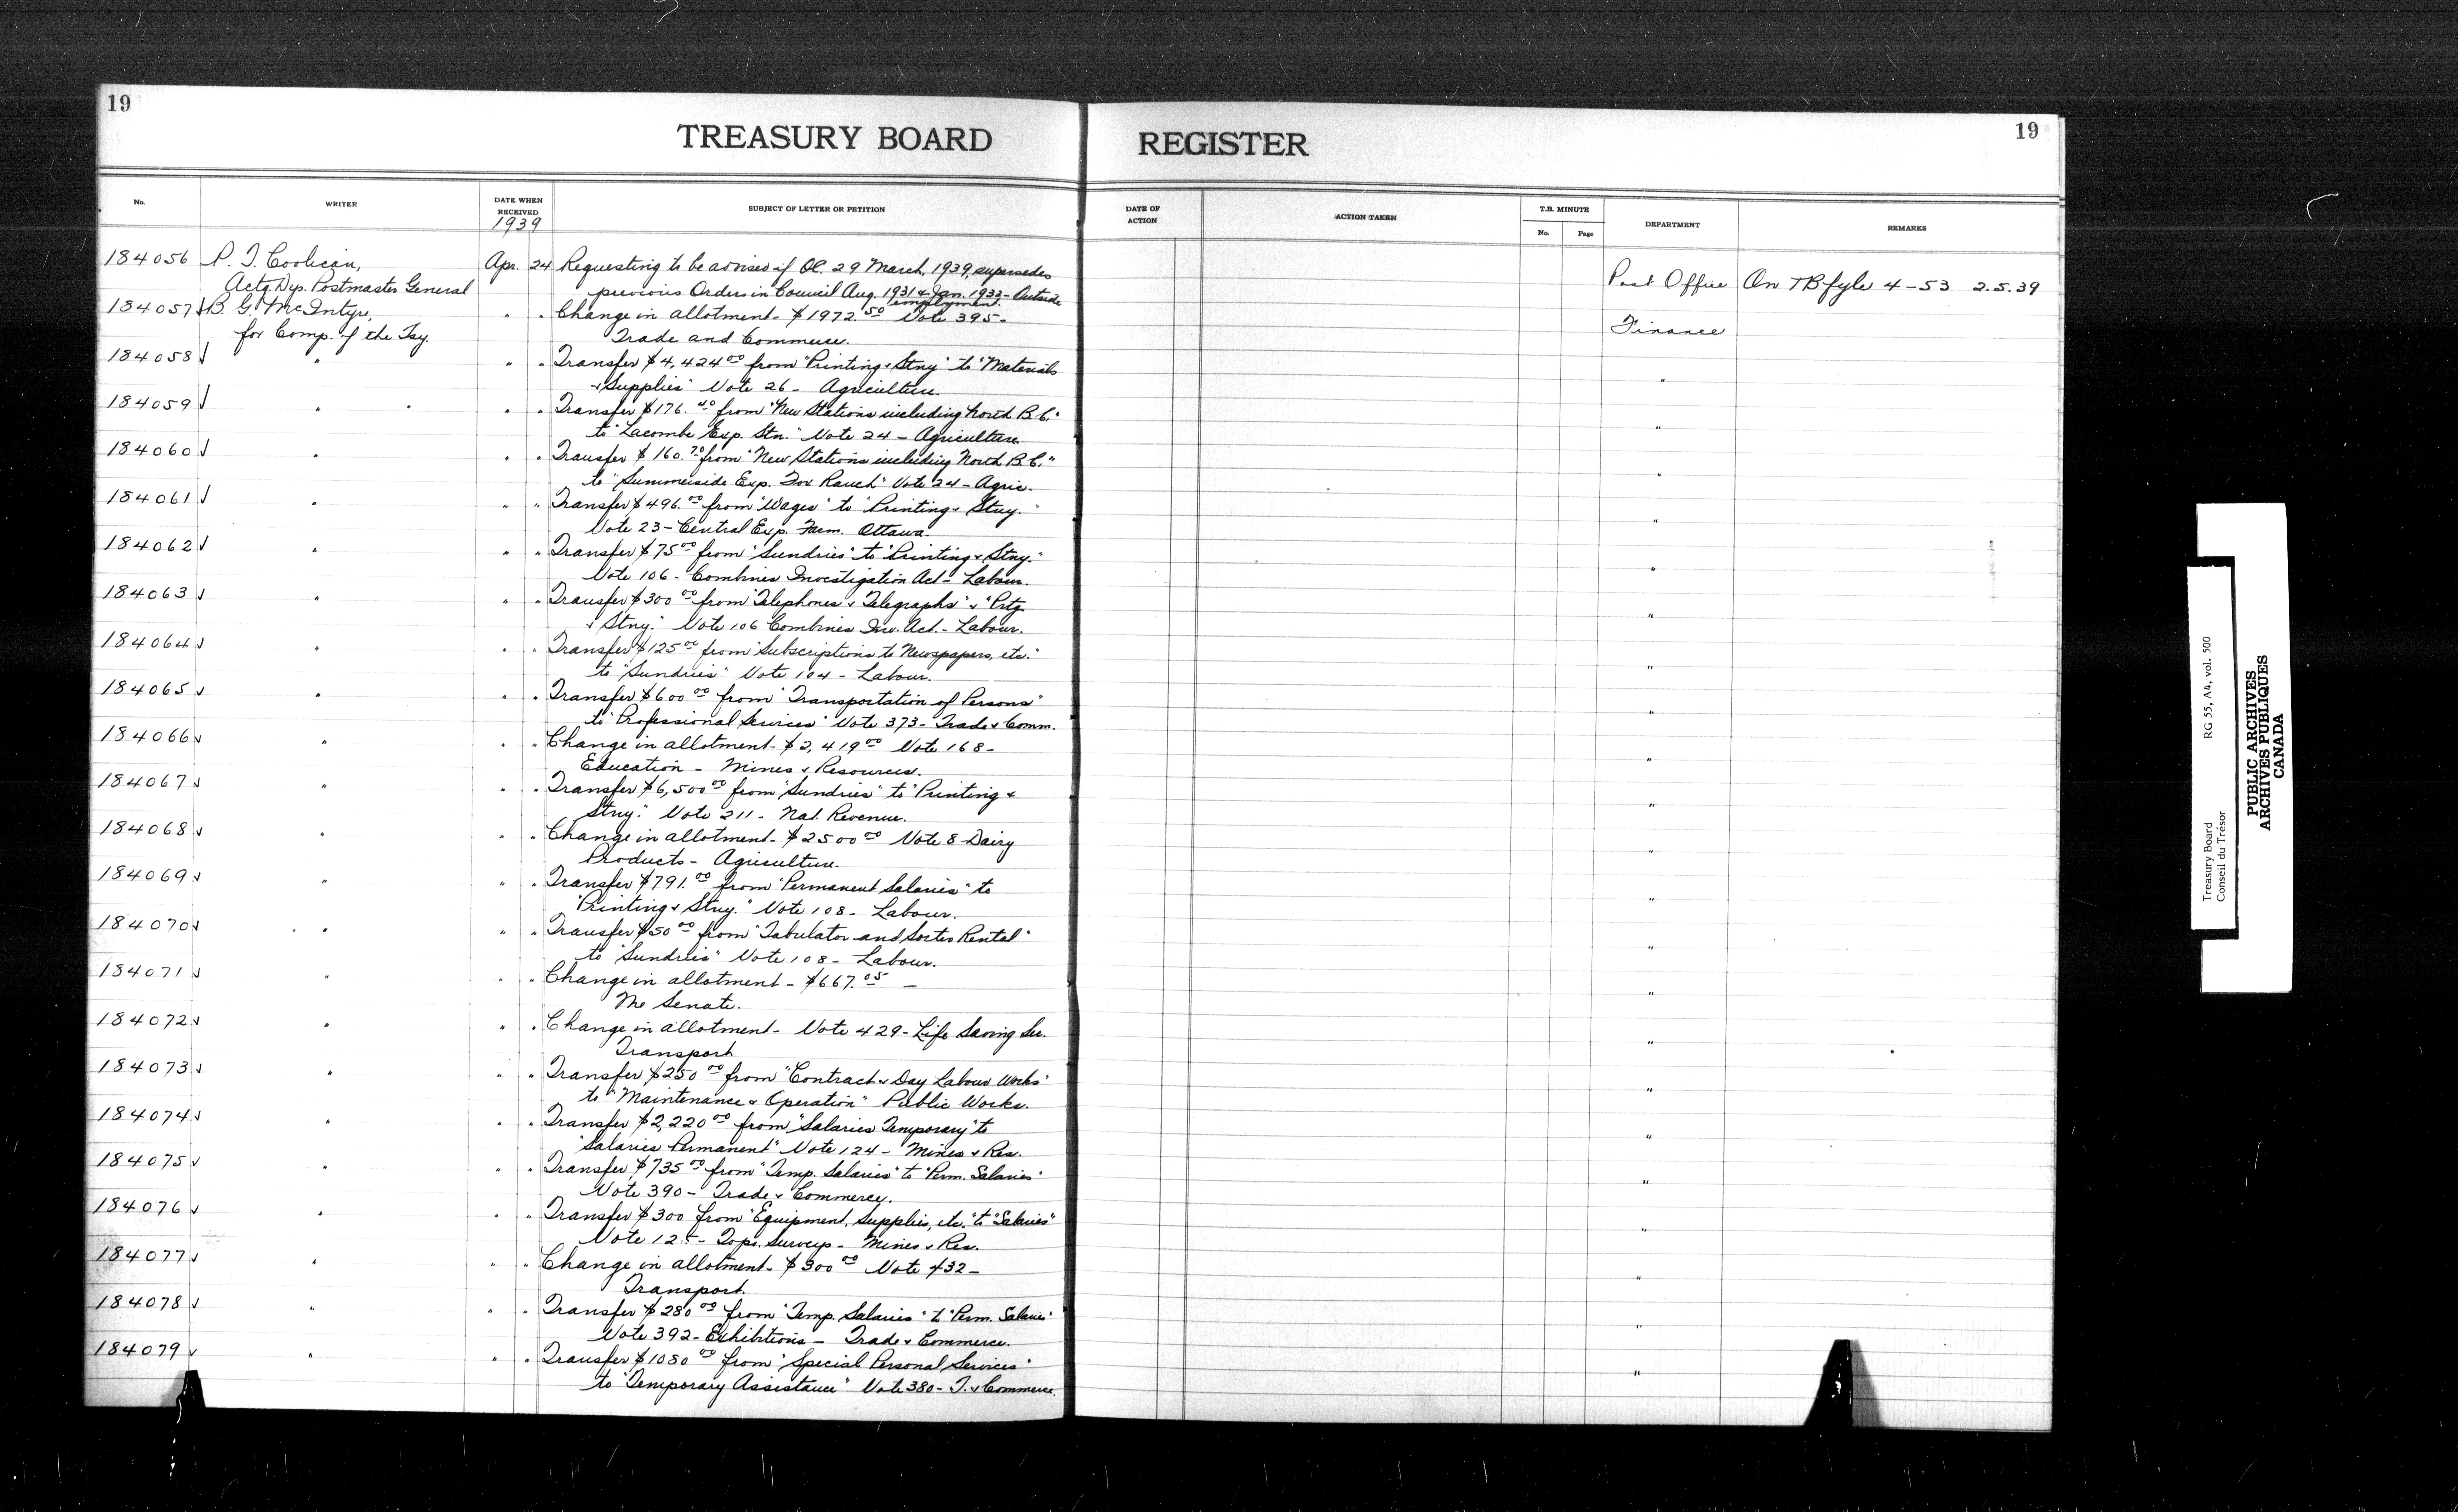 19
TREASURY BOARD REGISTER
19
No. WRITER DATE WHEN RECEIVED SUBJECT OF LETTER OR PETITION DATE OF ACTION ACTION TAKEN T.B. MINUTE No. Page DEPARTMENT REMARKS
1939
184056 P. T. Coolican, Apr. 24 Requesting to be advised if OC. 29 March, 1939, supersedes
Actg. Dep. Postmaster General previous Orders in Council Aug. 1931 & Jan. 1932 - Outside employment. Post Office On TB fyle 4-53 2.5.39
184057 B. G. McIntyre, " " Change in allotment - $1972.50 Vote 395 -
for Comp. of the Tsy. Trade and Commerce. Finance
184058 " " " Transfer $4,424.00 from "Printing & Stny" to "Materials
& Supplies" Vote 26 - Agriculture. "
184059 " " " Transfer $176.40 from "New Stations including North B.C."
to "Lacombe Exp. Stn." Vote 24 - Agriculture. "
184060 " " " Transfer $160.70 from "New Stations including North B.C."
to "Summerside Exp. Fox Ranch" Vote 24 - Agric. "
184061 " " " Transfer $496.00 from "Wages" to "Printing & Stny."
Vote 23 - Central Exp. Farm. Ottawa. "
184062 " " " Transfer $75.00 from "Sundries" to "Printing & Stny."
Vote 106 - Combines Investigation Act - Labour. "
184063 " " " Transfer $300.00 from "Telephones & Telegraphs" & "Prtg.
& Stny." Vote 106 Combines Inv. Act. - Labour. "
184064 " " " Transfer $125.00 from "Subscriptions to Newspapers, etc."
to "Sundries" Vote 104 - Labour. "
184065 " " " Transfer $600.00 from "Transportation of Persons"
to "Professional Services" Vote 373 - Trade & Comm. "
184066 " " " Change in allotment - $2,419.00 Vote 168 -
Education - Mines & Resources. "
184067 " " " Transfer $6,500.00 from "Sundries" to "Printing &
Stny." Vote 211 - Nat. Revenue. "
184068 " " " Change in allotment - $2500.00 Vote 8 Dairy
Products - Agriculture. "
184069 " " " Transfer $791.00 from "Permanent Salaries" to
"Printing & Stny." Vote 108 - Labour. "
184070 " " " Transfer $50.00 from "Tabulator and Sorter Rental"
to "Sundries" Vote 108 - Labour. "
184071 " " " Change in allotment - $667.05 -
The Senate. "
184072 " " " Change in allotment - Vote 429 - Life Saving Ser.
Transport "
184073 " " " Transfer $250.00 from "Contract & Day Labour Works"
to "Maintenance & Operation" Public Works. "
184074 " " " Transfer $2,220.00 from "Salaries Temporary" to
"Salaries Permanent" Vote 124 - Mines & Res. "
184075 " " " Transfer $735.00 from "Temp. Salaries" to "Perm. Salaries"
Vote 390 - Trade & Commerce. "
184076 " " " Transfer $300 from "Equipment, Supplies, etc." to "Salaries"
Vote 125 - Topo. Surveys - Mines & Res. "
184077 " " " Change in allotment - $300.00 Vote 432 -
Transport. "
184078 " " " Transfer $280.00 from "Temp. Salaries" to "Perm. Salaries"
Vote 392 - Exhibitions - Trade & Commerce. "
184079 " " " Transfer $1080.00 from "Special Personal Services"
to "Temporary Assistance" Vote 380 - T. & Commerce. "
Treasury Board RG 55, A4, vol. 500
Conseil du Trésor
PUBLIC ARCHIVES
ARCHIVES PUBLIQUES
CANADA